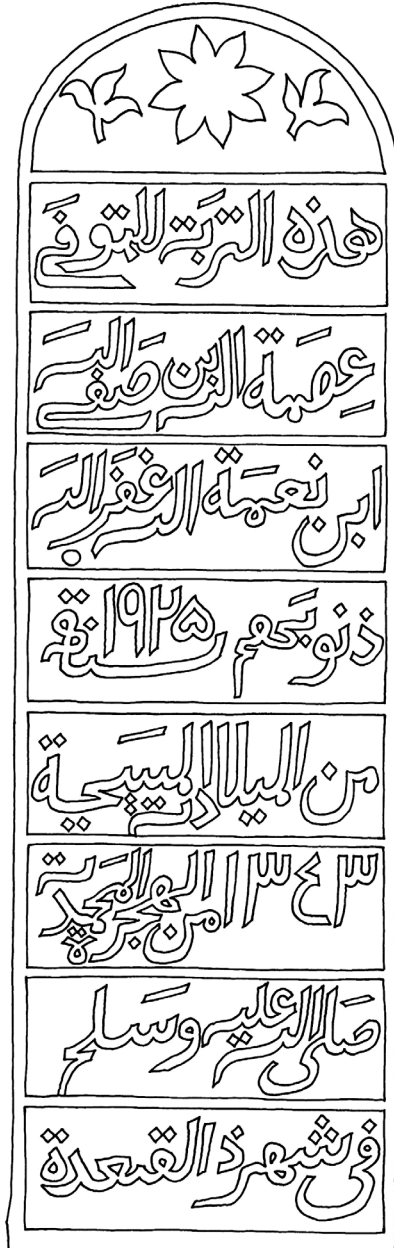 هذه التربة للمتوفى
عصمة الله بن صفي الله
ابن نعمة الله غفر الله
ذنوبهم سنة ١٩٢٥
من الميلادية المسيحية
١٣٤٣ من الهجرة المحمدية
صلى الله عليه وسلم
في شهر ذالقعدة